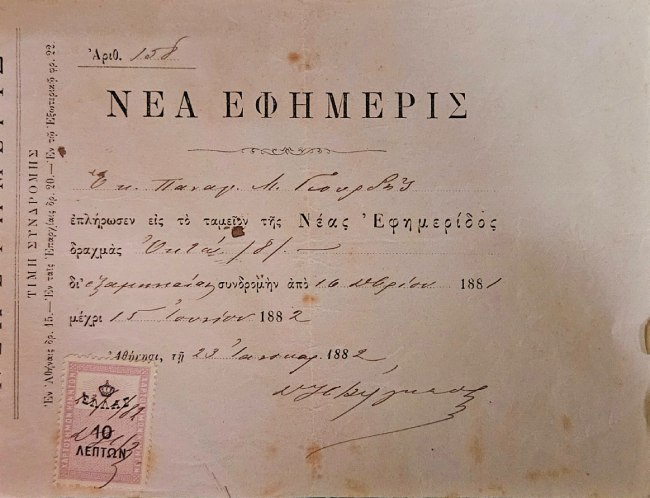 Ἀριθ. 158
ΝΕΑ ΕΦΗΜΕΡΙΣ
Ὁ κ. Παναγ. Μ.
ἐπλήρωσεν εἰς τὸ ταμεῖον τῆς Νέας Ἐφημερίδος
δραχμὰς Ὀκτώ /8/ —
δι' ἑξαμηνιαίαν συνδρομὴν ἀπὸ 16 1881
μέχρι 15 Ἰουνίου 1882
Ἀθήνησι, τῇ 23 1882
ΕΛΛΑΣ
10
ΛΕΠΤΩΝ
ΤΙΜΗ ΣΥΝΔΡΟΜΗΣ
Ἐν Ἀθήναις δρ. 15.—Ἐν ταῖς Ἐπαρχίαις δρ. 20.—Ἐν τῷ Ἐξωτερικῷ φρ. 22